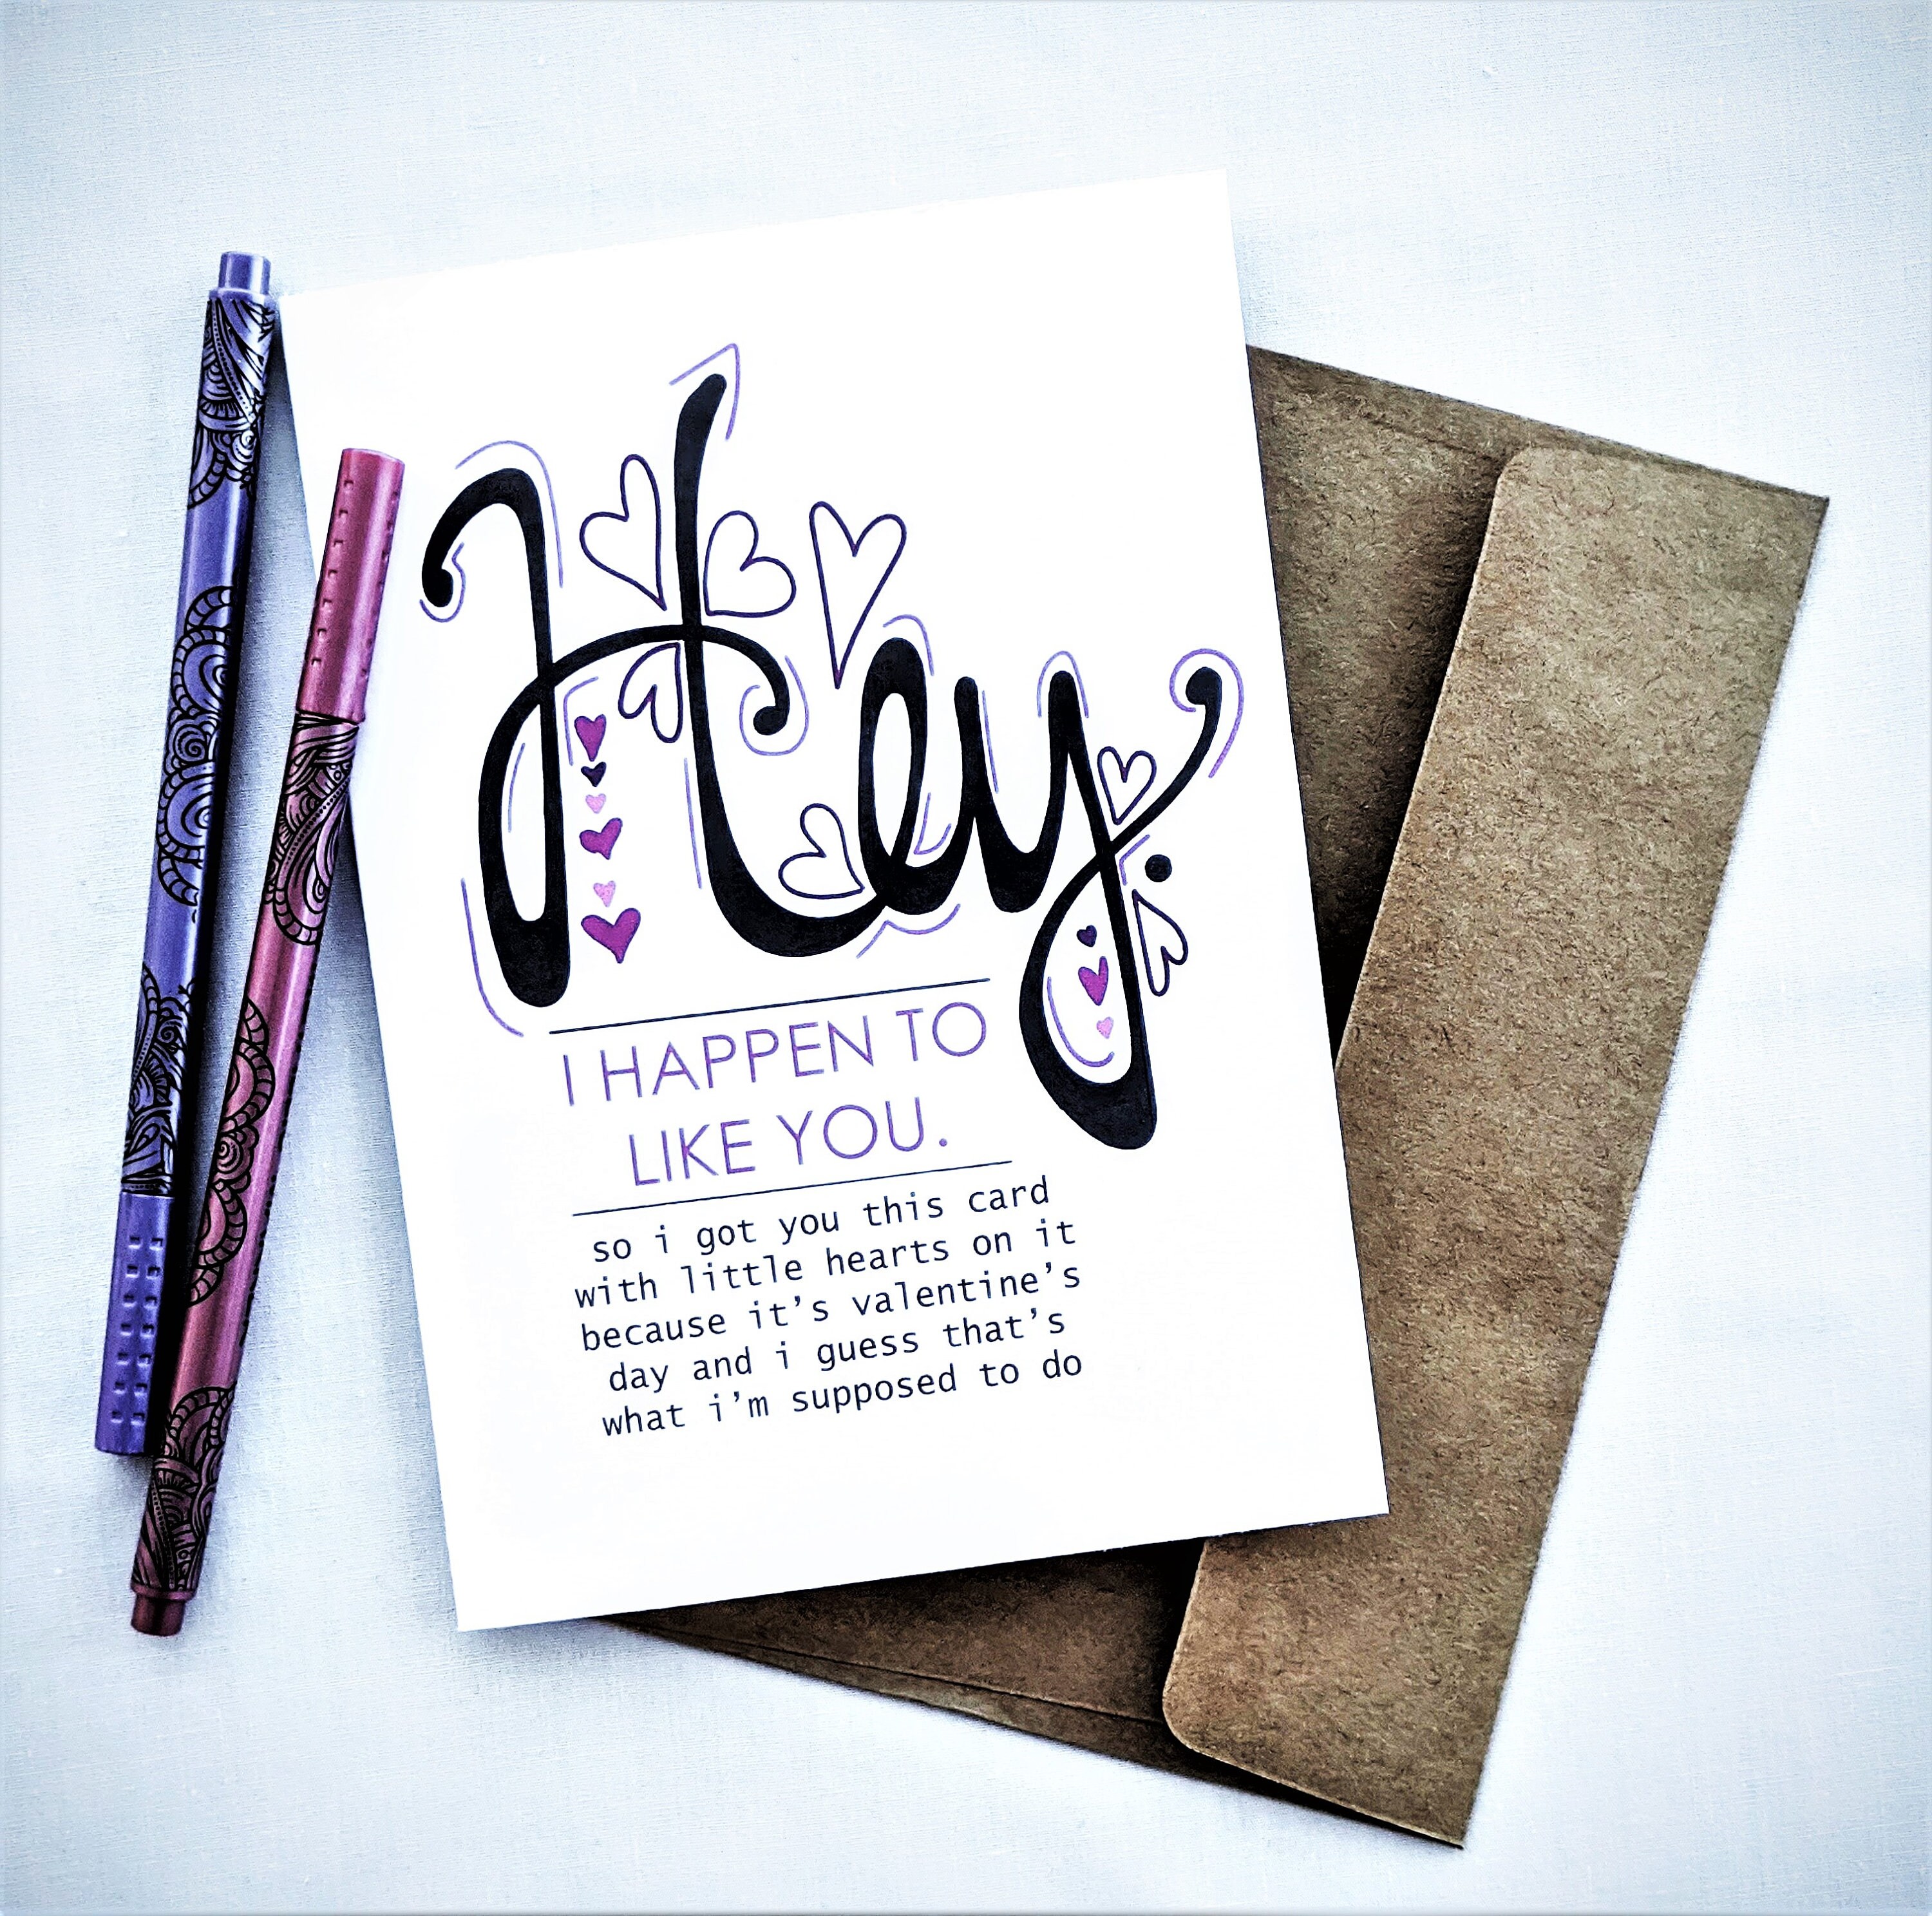 Hey.
I HAPPEN TO
LIKE YOU.
so i got you this card
with little hearts on it
because it’s valentine’s
day and i guess that’s
what i’m supposed to do